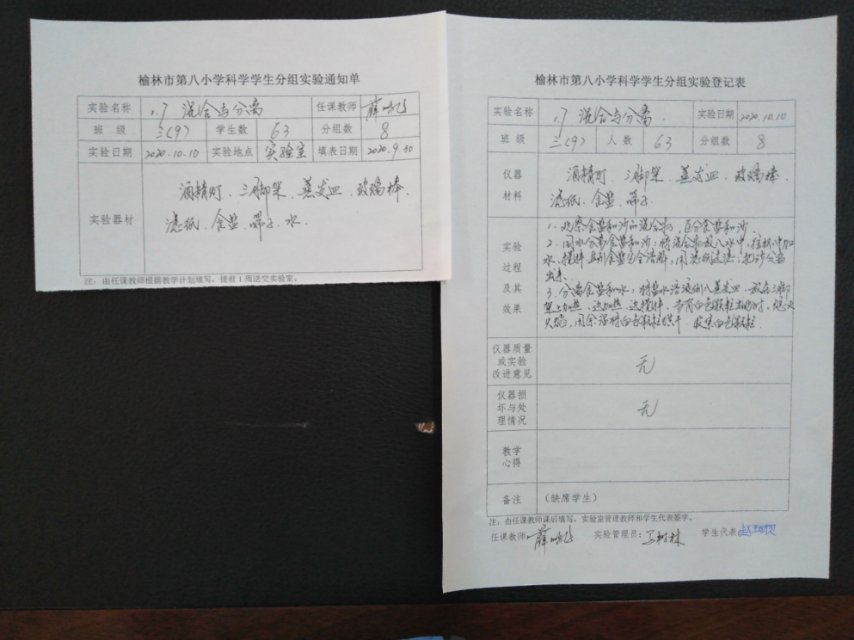 榆林市第八小学科学学生分组实验通知单
实验名称 1.7 混合与分离 任课教师
班 级 三(9) 学生数 63 分组数 8
实验日期 2020.10.10 实验地点 实验室 填表日期 2020.9.30
实验器材
酒精灯、三脚架、蒸发皿、玻璃棒、
滤纸、食盐、筛子、水、
注：由任课教师根据教学计划填写，提前1周送交实验室。
榆林市第八小学科学学生分组实验登记表
实验名称 1.7 混合与分离 实验日期 2020.10.10
班 级 三(9) 人 数 63 分组数 8
仪器
材料
酒精灯、三脚架、蒸发皿、玻璃棒、
滤纸、食盐、筛子、
实验
过程
及其
效果
1、观察食盐和沙的混合物，区分食盐和沙
2、用水分离食盐和沙：将混合物放入水中，往杯中加
水，搅拌直到食盐完全溶解，用滤纸过滤，把沙分离
出来。
3、分离食盐和水：将盐水溶液倒入蒸发皿，放在三脚
架上加热，边加热，边搅拌，当有白色颗粒出现时，熄灭
火焰，用余温将白色颗粒烘干，收集白色颗粒。
仪器质量
或实验
改进意见
无
仪器损
坏与处
理情况
无
教学
心得
备注 （缺席学生）
注：由任课教师课后填写，实验室管理教师和学生代表签字。
任课教师 实验管理员： 学生代表